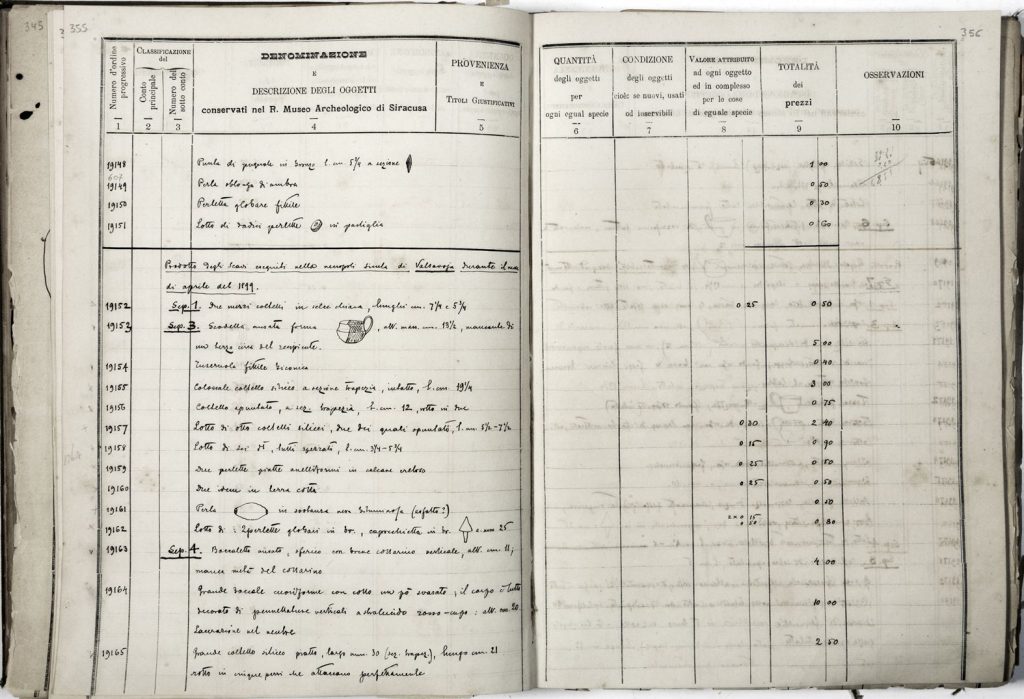 345
355
356
Numero d'ordine progressivo
CLASSIFICAZIONE del
Conto principale
Numero del sotto conto
DENOMINAZIONE
E
DESCRIZIONE DEGLI OGGETTI
conservati nel R. Museo Archeologico di Siracusa
PROVENIENZA
E
TITOLI GIUSTIFICATIVI
QUANTITÀ
degli oggetti
per
ogni egual specie
CONDIZIONE
degli oggetti
cioè: se nuovi, usati
od inservibili
VALORE ATTRIBUITO
ad ogni oggetto
ed in complesso
per le cose
di eguale specie
TOTALITÀ
dei
prezzi
OSSERVAZIONI
1 2 3 4 5 6 7 8 9 10
19148 Punta di pugnale in bronzo l. cm. 5 1/4 a sezione 1 00
607
19149 Perla oblonga d'ambra 0 50
19150 Perletta globare fittile 0 20
19151 Lotto di dodici perlette in pastiglia 0 60
Prodotto degli scavi eseguiti nella necropoli sicula di Valsavoja durante il mese
di aprile del 1899.
19152 Sep. 1. Due mezzi coltelli in selce chiara, lunghi cm. 7 1/4 e 5 3/4 0 25 0 50
19153 Sep. 3. Scodella ansata forma , alt. mass. cm. 13 1/2, mancante di
un terzo circa del recipiente. 5 00
19154 Fuseruola fittile biconica 0 40
19155 Colossale coltello siliceo a sezione trapezia, intatto, l. cm. 19 1/4 3 00
19156 Coltello spuntato, a sez. trapezia, l. cm. 12, rotto in due 0 75
19157 Lotto di otto coltelli silicei, due dei quali spuntati, l. cm. 0 30 2 40
19158 Lotto di sei di, tutti spezzati, l. cm. 3 3/4 - 5 3/4 0 15 0 90
19159 Due perlette piatte anelliformi in calcare 0 25 0 50
19160 Due idem in terra cotta 0 25 0 50
19161 Perla in sostanza nera bituminosa (asfalto?) 0 50
19162 Lotto di: 2 perlette globari in br., capocchietta in br. 25 2 x 0 15
0 50 0 80
19163 Sep. 4. Boccaletto ansato, sferico con breve collarino verticale, alt. cm. 11;
manca metà del collarino 4 00
19164 Grande boccale cuoriforme con collo un pò svasato; il corpo è tutto
decorato di pennellature verticali a lucido rosso-cupo: alt. cm. 20.
Lacerazione nel ventre 10 00
19165 Grande coltello siliceo piatto, largo mm. 30 (sez. trapez.), lungo cm. 21
rotto in cinque pezzi che attaccano perfettamente 2 50